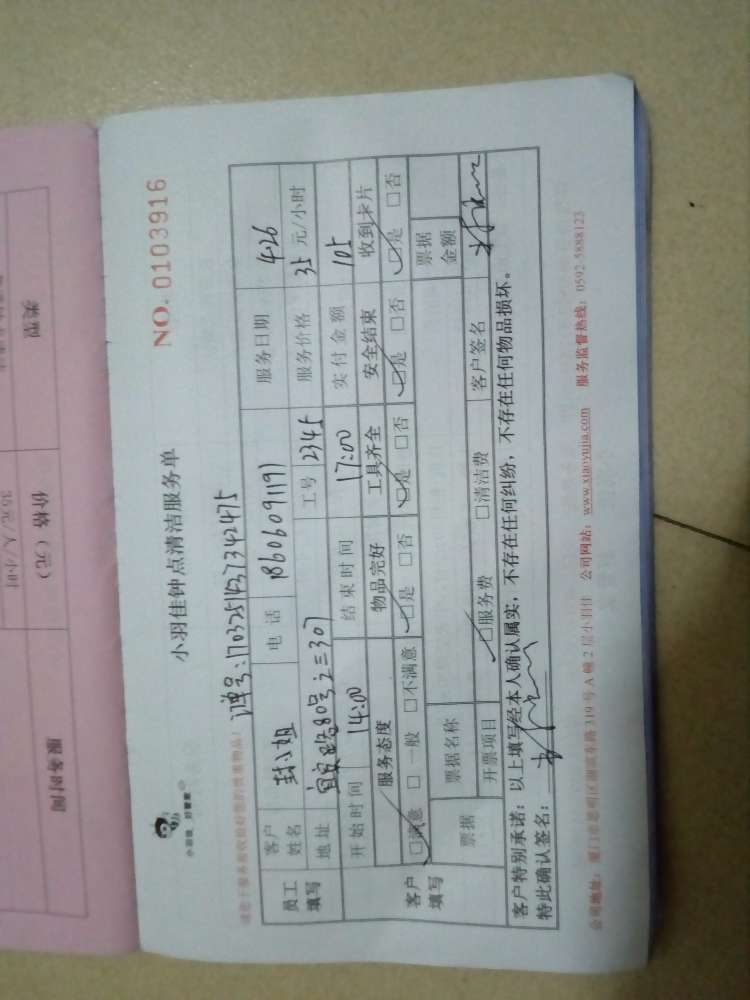 小羽佳钟点清洁服务单
NO. 0103916
订单号:1703251437342475
员工填写 客户姓名 封小姐 电话 18606091191 服务日期 4.26
地址 宜安路80号之三307 工号 2345 服务价格 35 元/小时
开始时间 14:00 结束时间 17:00 实付金额 105
客户填写 服务态度 物品完好 工具齐全 安全结束 收到卡片
☑满意 □一般 □不满意 ☑是 □否 ☑是 □否 ☑是 □否 ☑是 □否
票据 票据名称 票据金额
开票项目 ☑服务费 □清洁费 客户签名
客户特别承诺:以上填写经本人确认属实,不存在任何纠纷,不存在任何物品损坏。
特此确认签名:
公司地址:厦门市思明区湖滨东路319号A幢2层小羽佳 公司网站:www.xiaoyujia.com 服务监督热线:0592-5888123
类型
价格(元)
35元/人/小时
服务时间